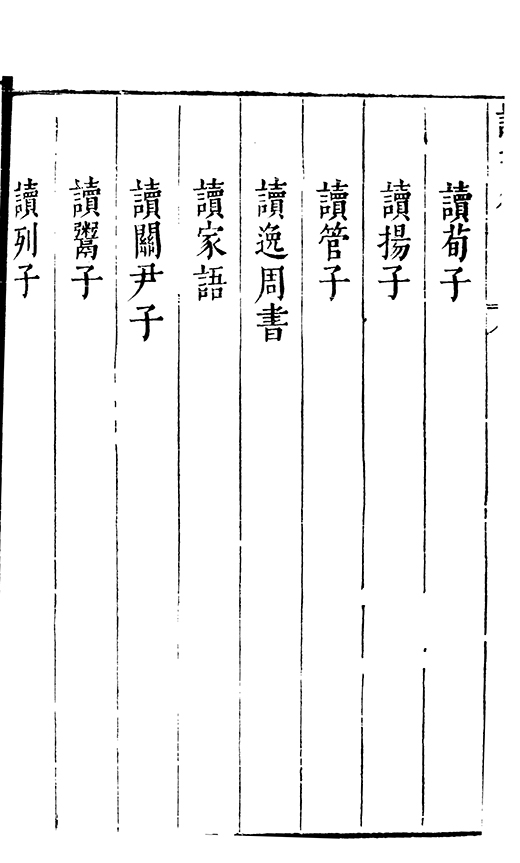 讀荀子
讀揚子
讀管子
讀逸周書
讀家語
讀關尹子
讀鬻子
讀列子